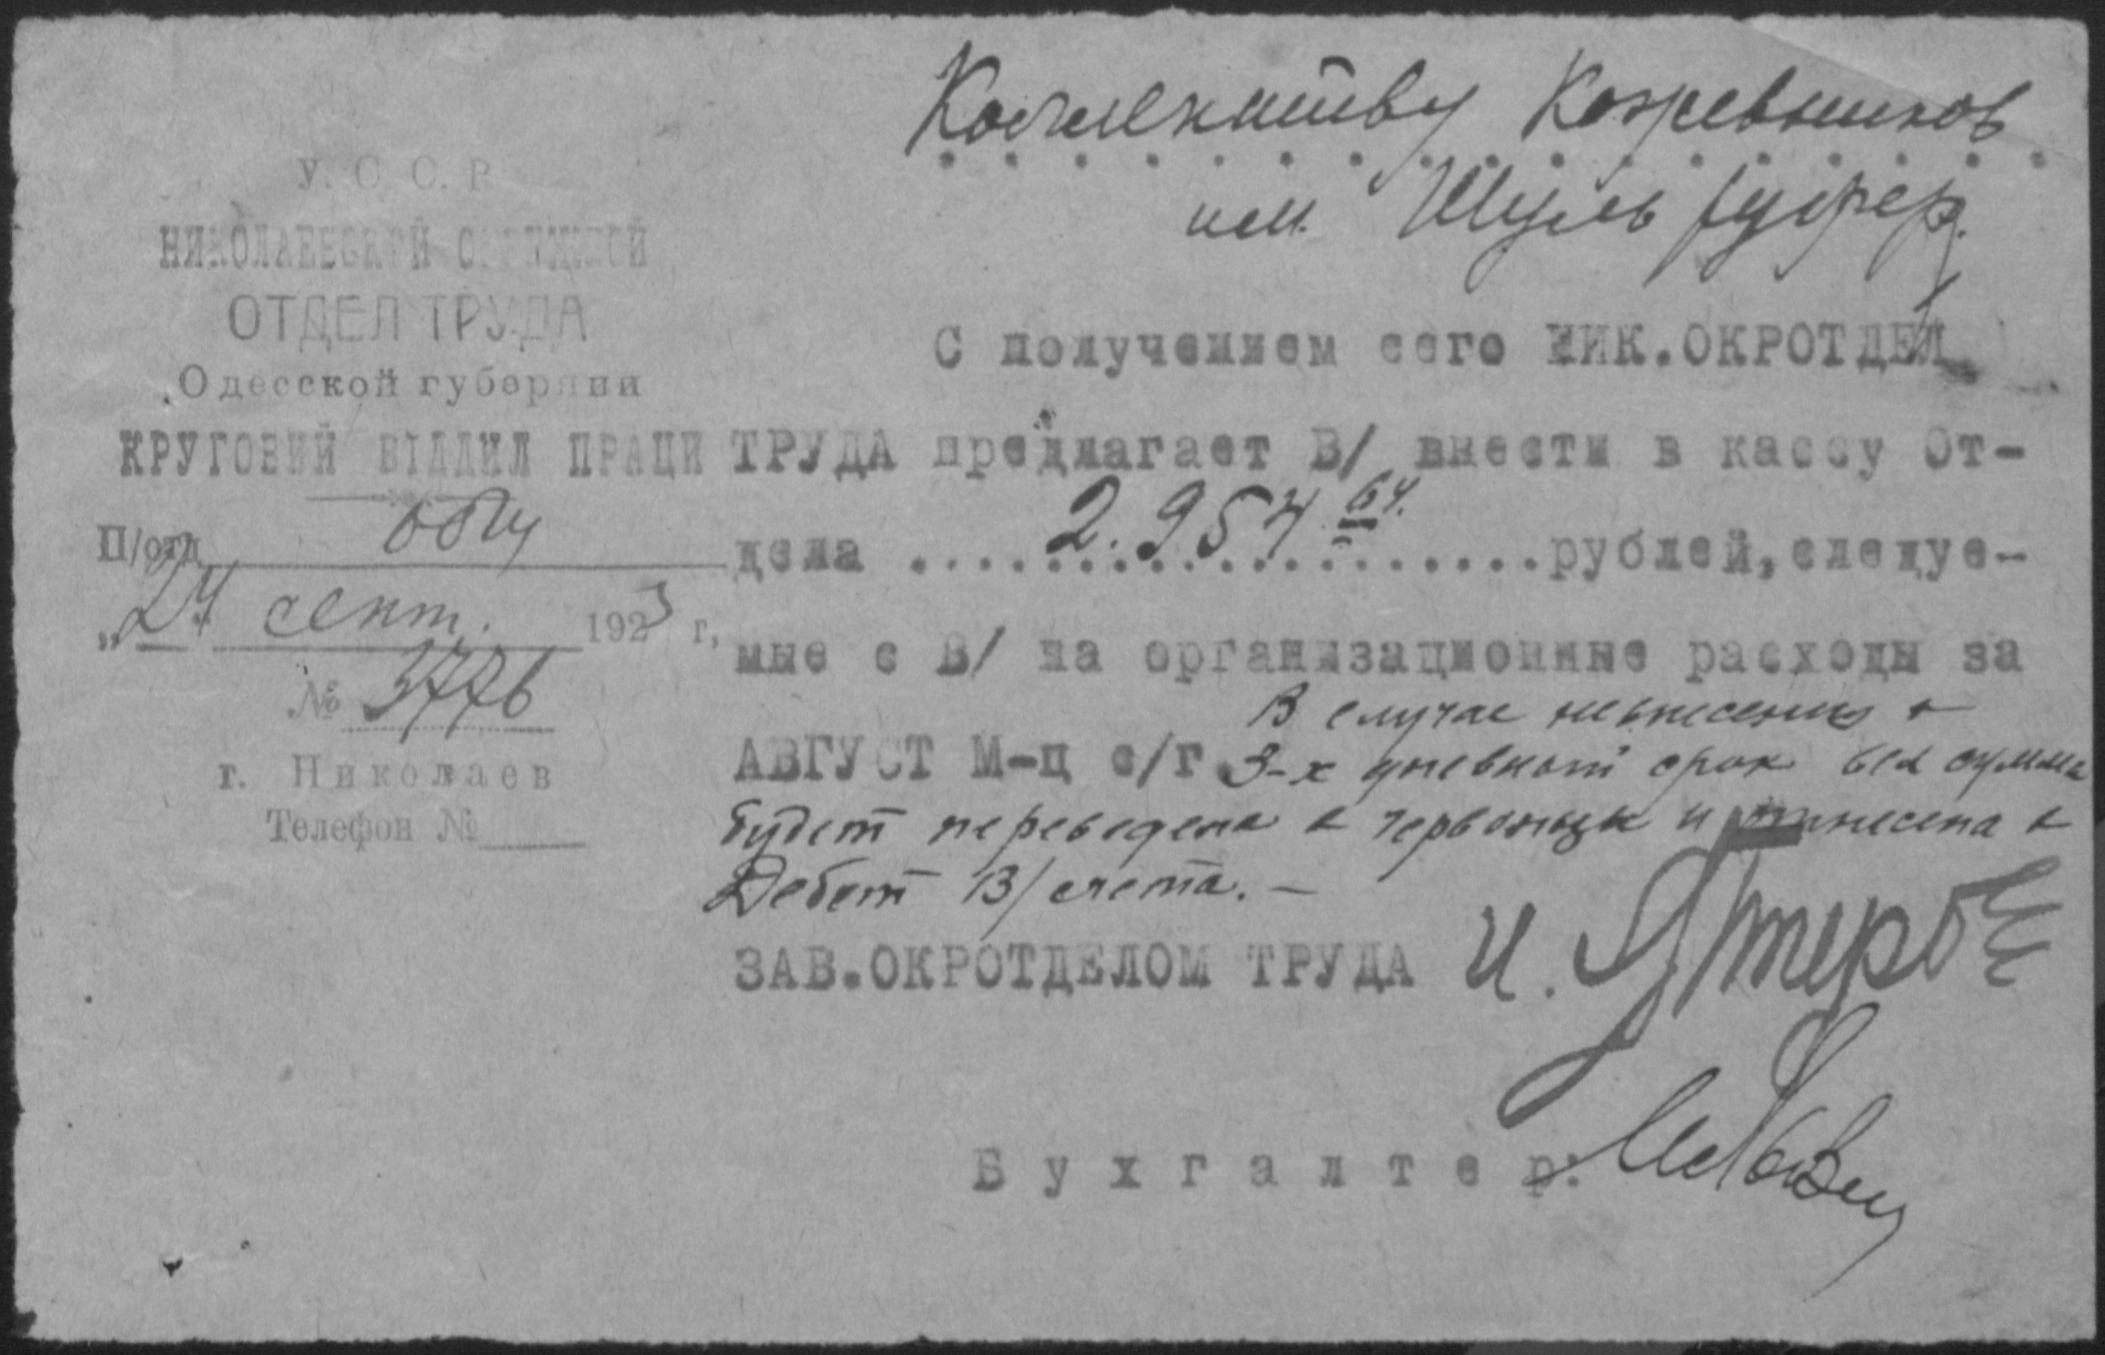 У. С. С. Р.
НИКОЛАЕВСКОЙ ОКРУЖНОЙ
ОТДЕЛ ТРУДА
Одесской губернии
КРУГОВИЙ ВІДДИЛ ПРАЦИ
П/отд
"24 сент. 1923 г.
№ 3776
г. Николаев
Телефон №
Кожевников
им. Шуль
С получением сего НИК.ОКРОТДЕЛ
ТРУДА предлагает В/ внести в кассу От-
дела .... 2.954 64 .... рублей, следуе-
мые с В/ на организационные расходы за
АВГУСТ М-ц с/г. В случае невнесения в
3-х дневной срок вся сумма
будет переведена в червонцы и в
Дебет В/ счета. —
ЗАВ.ОКРОТДЕЛОМ ТРУДА И.
Бухгалтер: